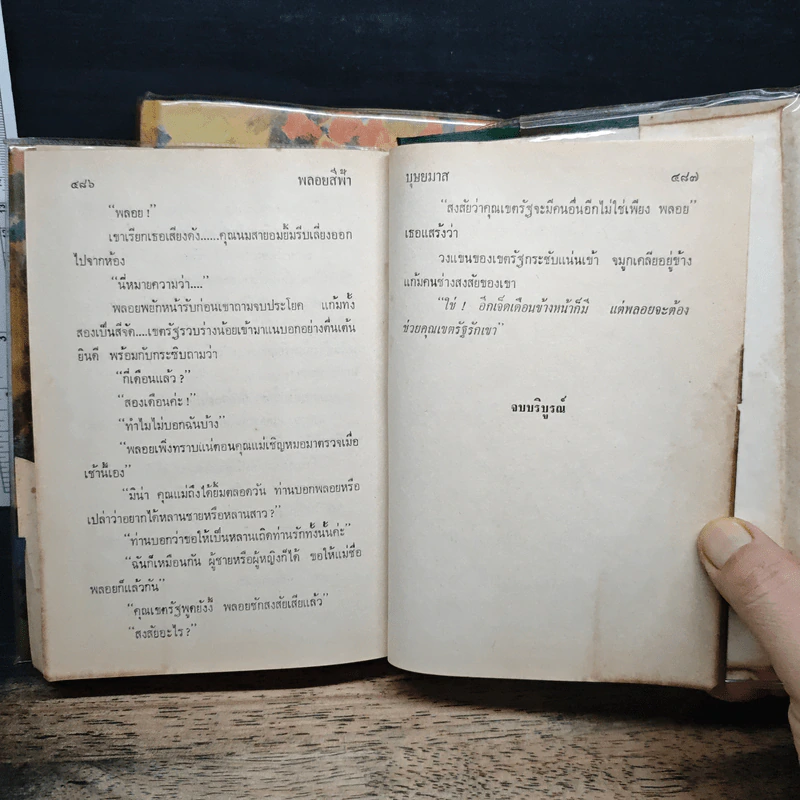 ๔๘๖ พลอยสีฟ้า
"พลอย !"
เขาเรียกเธอเสียงดัง......คุณนมสายอมยิ้มรีบเลี่ยงออก
ไปจากห้อง
"นี่หมายความว่า...."
พลอยพยักหน้ารับก่อนเขาถามจบประโยค แก้มทั้ง
สองเป็นสีจัด....เขตรัฐรวบร่างน้อยเข้ามาแนบอกอย่างตื่นเต้น
ยินดี พร้อมกับกระซิบถามว่า
"กี่เดือนแล้ว ?"
"สองเดือนค่ะ !"
"ทำไมไม่บอกฉันบ้าง"
"พลอยเพิ่งทราบแน่ตอนคุณแม่เชิญหมอมาตรวจเมื่อ
เช้านี้เอง"
"มิน่า คุณแม่ถึงได้ยิ้มตลอดวัน ท่านบอกพลอยหรือ
เปล่าว่าอยากได้หลานชายหรือหลานสาว ?"
"ท่านบอกว่าขอให้เป็นหลานเถิดท่านรักทั้งนั้นค่ะ"
"ฉันก็เหมือนกัน ผู้ชายหรือผู้หญิงก็ได้ ขอให้แม่ชื่อ
พลอยก็แล้วกัน"
"คุณเขตรัฐพูดยังงี้ พลอยชักสงสัยเสียแล้ว"
"สงสัยอะไร ?"
บุษยมาส ๔๘๗
"สงสัยว่าคุณเขตรัฐจะมีคนอื่นอีกไม่ใช่เพียง พลอย"
เธอแสร้งว่า
วงแขนของเขตรัฐกระชับแน่นเข้า จมูกเคลียอยู่ข้าง
แก้มคนช่างสงสัยของเขา
"ใช่ ! อีกเจ็ดเดือนข้างหน้าก็มี แต่พลอยจะต้อง
ช่วยคุณเขตรัฐรักเขา"
จบบริบูรณ์